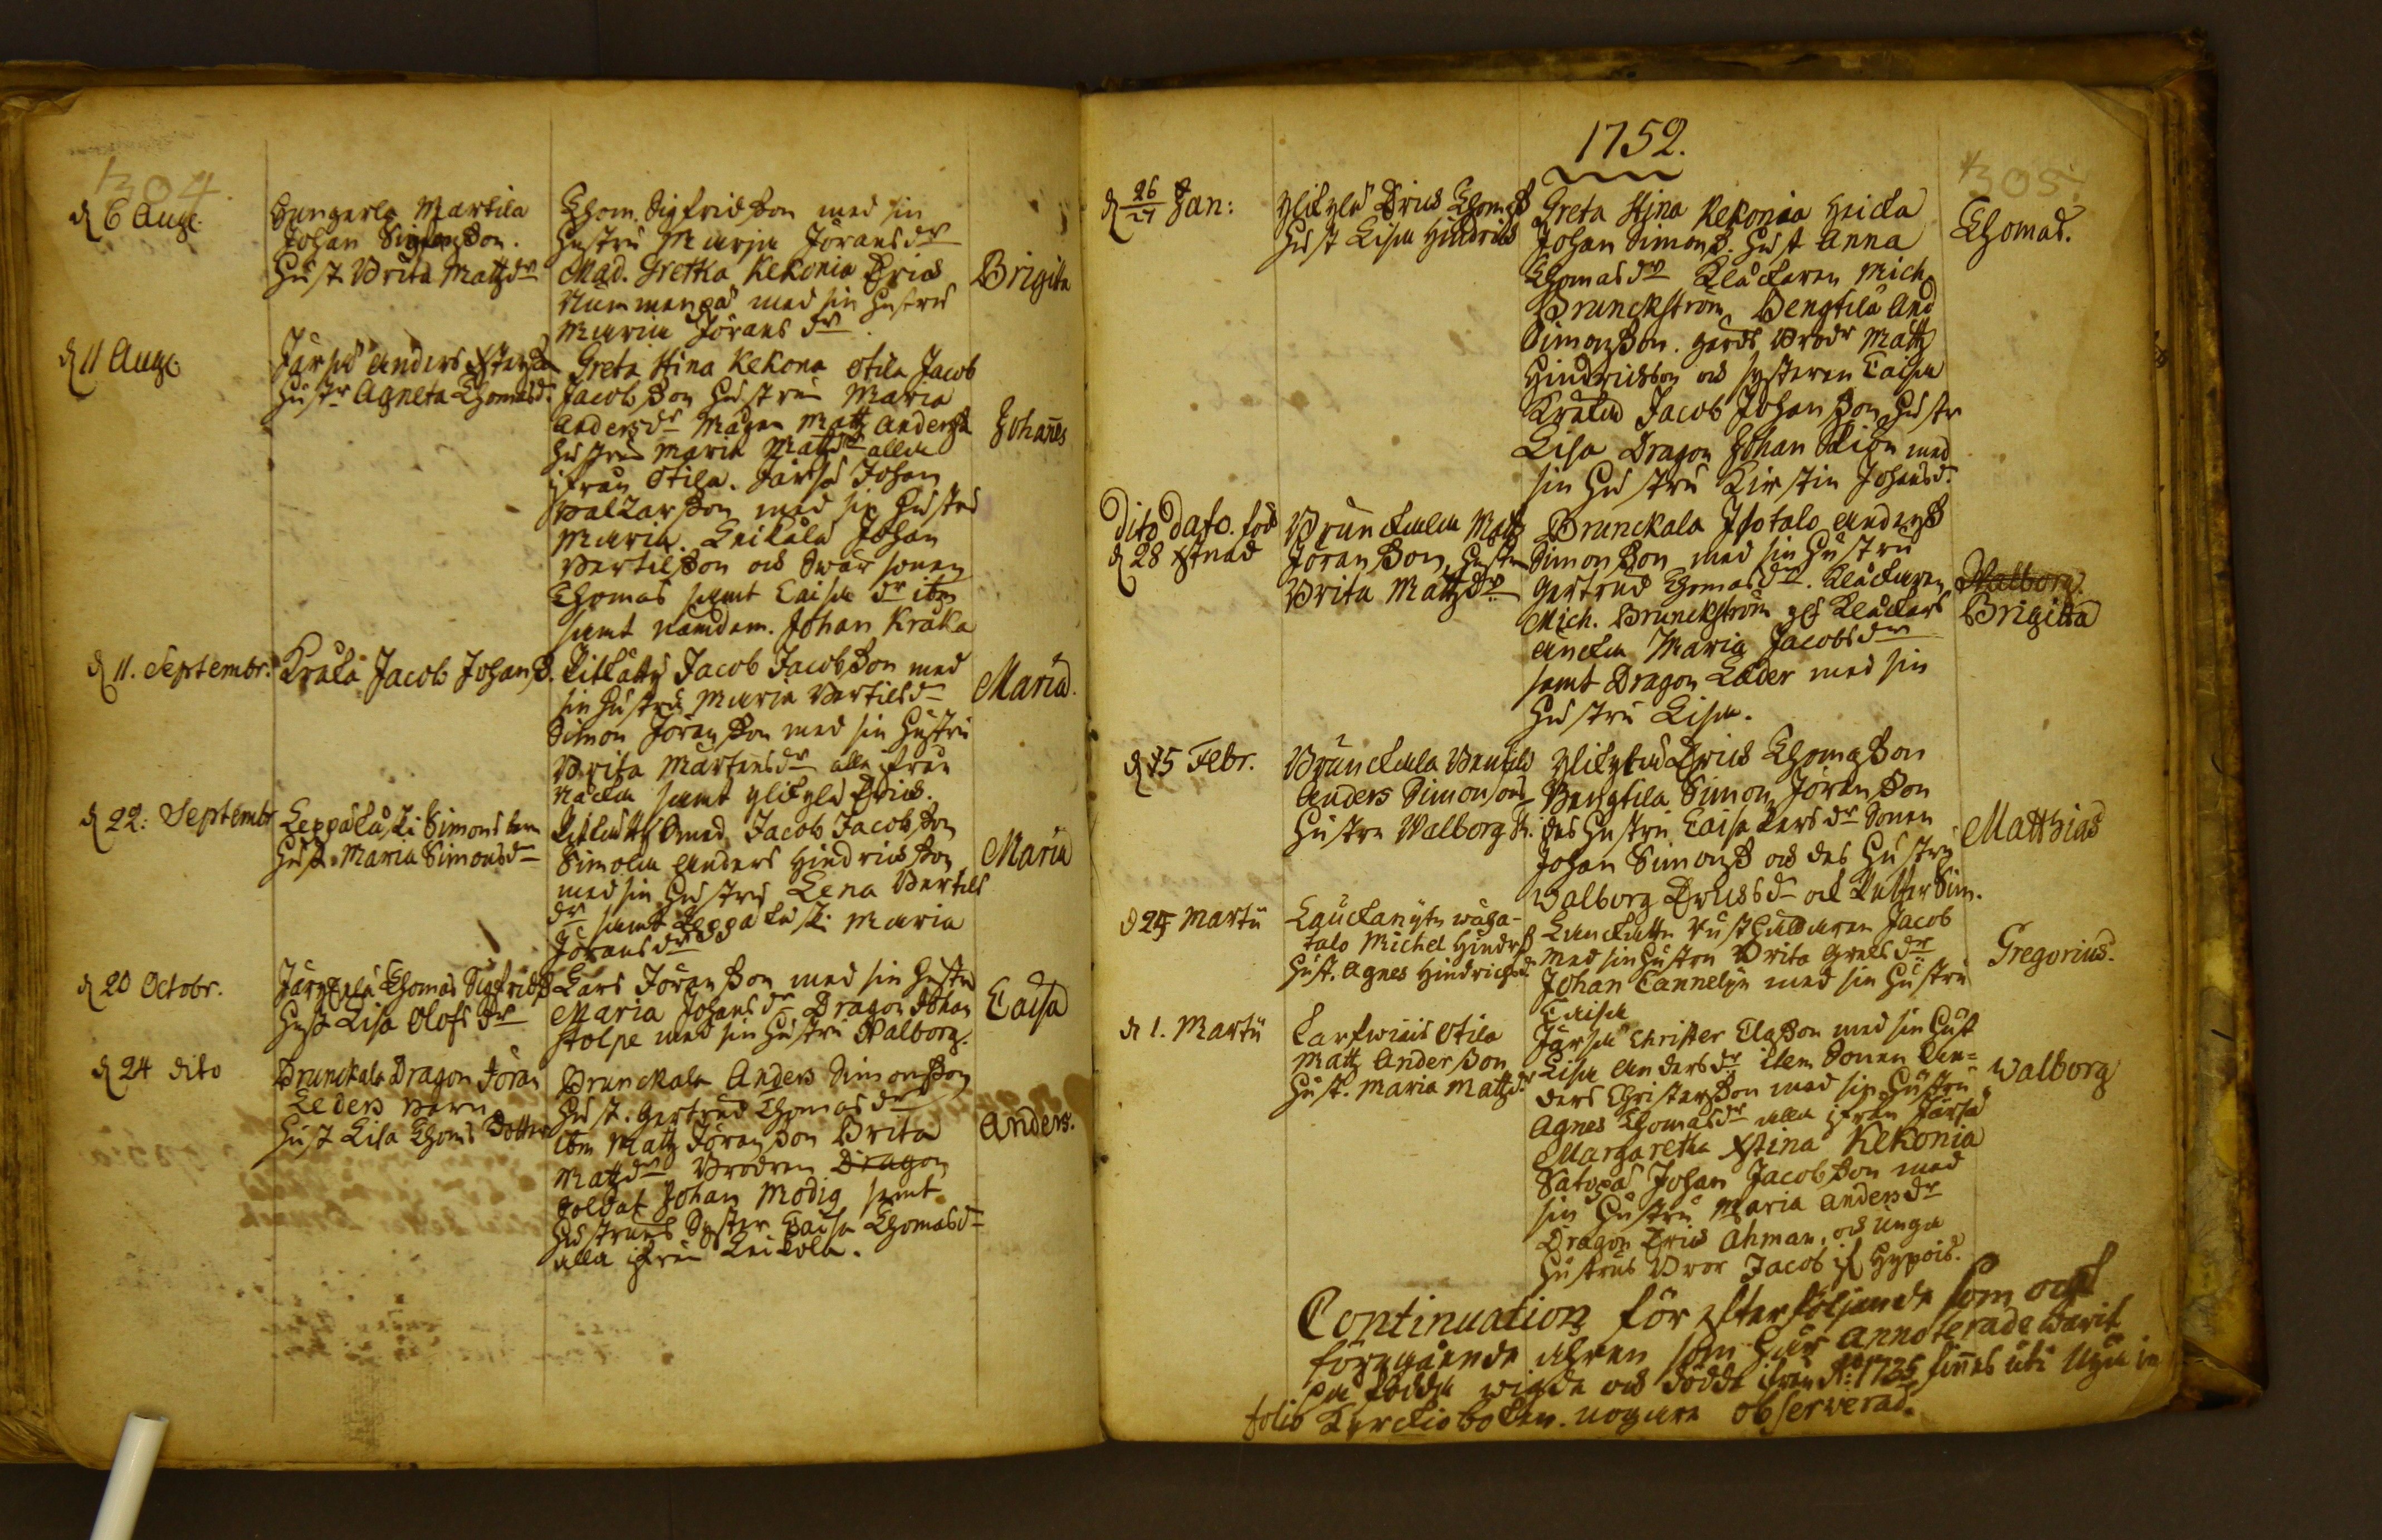 304
d 6 Aug:
Hungerla Martila
Johan Sigfredßon.
Hust. Brita Mattzdr
Thom. Sigfridßon med sin
Hustru Maria Jöransdr
Mad. Gretka Kekonia Erics
Nummenpä med sin Hustru
Maria Jöransdr
Brigita
d 11 Aug:
Järpä Anders
Hustr Agneta Thomasd.
Greta Stina Kekona Otila Jacob
Jacobßon Hustru Maria
Andersdr Mågen Mattz Andersß
Hustru Maria Mattzdr alla
ifrån Otila. Järpä Johan
Baltzarßon med sin Hustru
Maria. Leikala Johan
Bertilßon och Swär sonen
Thomas samt Caisa dr ibm
samt nämdem. Johan Kråka
Johannes
d 11. Septembr.
Kråka Jacob Johanß.
Jacob Jacobßon med
sin Hustru Maria Bertilsdr
Simon Jöranßon med sin Hustru
Brita Mårtensdr alla ifrån
Näckä samt Ylikylä Eric.
Maria.
d 22: Septembr
Leppäkåski Simons barn
Hust. Maria Simonsdr
Jacob Jacobßon
Simola Anders Hindricßon
med sin Hustru Lena Bertils
dr samt Leppäkoski Maria
Jöransdr
Maria
d 20 Octobr.
Thomas Sigfridsß
Hust Lisa Olofsdr
Lars Jöranßon med sin Hustru
Maria Johansdr Dragon Johan
Stolpe med sin Hustru Walborg.
Caisa
d 24 dito
Brunckala Dragon Jöran
Leders barn
Hust Lisa Thoms Dotter
Brunckala Anders Simonßon
Hust. Gertrud Thomasdr
ibm Mattz Jöranßon Brita
Mattzdr Brodren Dragon
Soldat Johan Modig samt
Hustruns Syster Caisa Thomasdr
alla ifrån Leikola.
Anders.
1752.
305
d 26/27 Jan:
Ylikylä Erics Thomsß
Hust Lisa Hindrics
Greta Stina Kekonia Heicka
Johan Simonß. Hust Anna
Thomasdr Klåckaren Mich.
Brunckström, Bengtila And
Simonßon. gårds Brodr Mattz
Hindricsson och systeren Caisa
Kråka Jacob Johanßon Hustr
Lisa Dragon Johan med
sin Hustru Kirstin Johansd.
Thomas.
Dito Dato. föd
d 28 Xtnad
Brunckala Mattz
Jöranßon, Hustru
Brita Mattzdr
Brunckala Isotalo Andersß
Simonßon med sin Hustru
Gertrud Thomasdr. Klåckaren
Mich. Brunckström och Klåckars
Enckia Maria Jacobsdr
samt Dragon Leder med sin
Hustru Lisa.
Walborg.
Brigitta
d 15 Febr.
Brunckala Bengtila
Anders Simonsons
Hustru Walborg
Ylikylä Erics Thomasßon
Bengtila Simon Jöranßon
des Hustru Caisa Larsdr Sonen
Johan Simonß och des Hustru
Walborg Ericsdr och Sim.
Matthias
d 24 Martii
Lauckanytn wäha-
talo Michel Hindrß
Hust. Agnes Hindrichsd.
Rusthållaren Jacob
med sin Hustru Brita Grelsdr
Johan Tannelijn med sin Hustru
Caisa
Gregorius.
d 1. Martii
Otila
Mattz Anderßon
Hust. Maria Mattzdr
Järpä Christer Claßon med sin Hust
Lisa Andersdr item Sonen An=
ders Christerßon med sin Hustru
Agnes Thomasdr alla ifrån Järpä
Margaretha Xstina Kekonia
Satopä Johan Jacobßon med
sin Hustru Maria Andersdr
Dragon Eric Ahman, och unga
Hustrus Bror Jacob if Hypöis.
Walborg
Continuation för efterföljande som ock
föregående åhren som här annoterade warit
på födda wigde och dödde ifrån Ao: 1725 finnes uti Nya in
folio Kyrckioboken. nogare observerad.